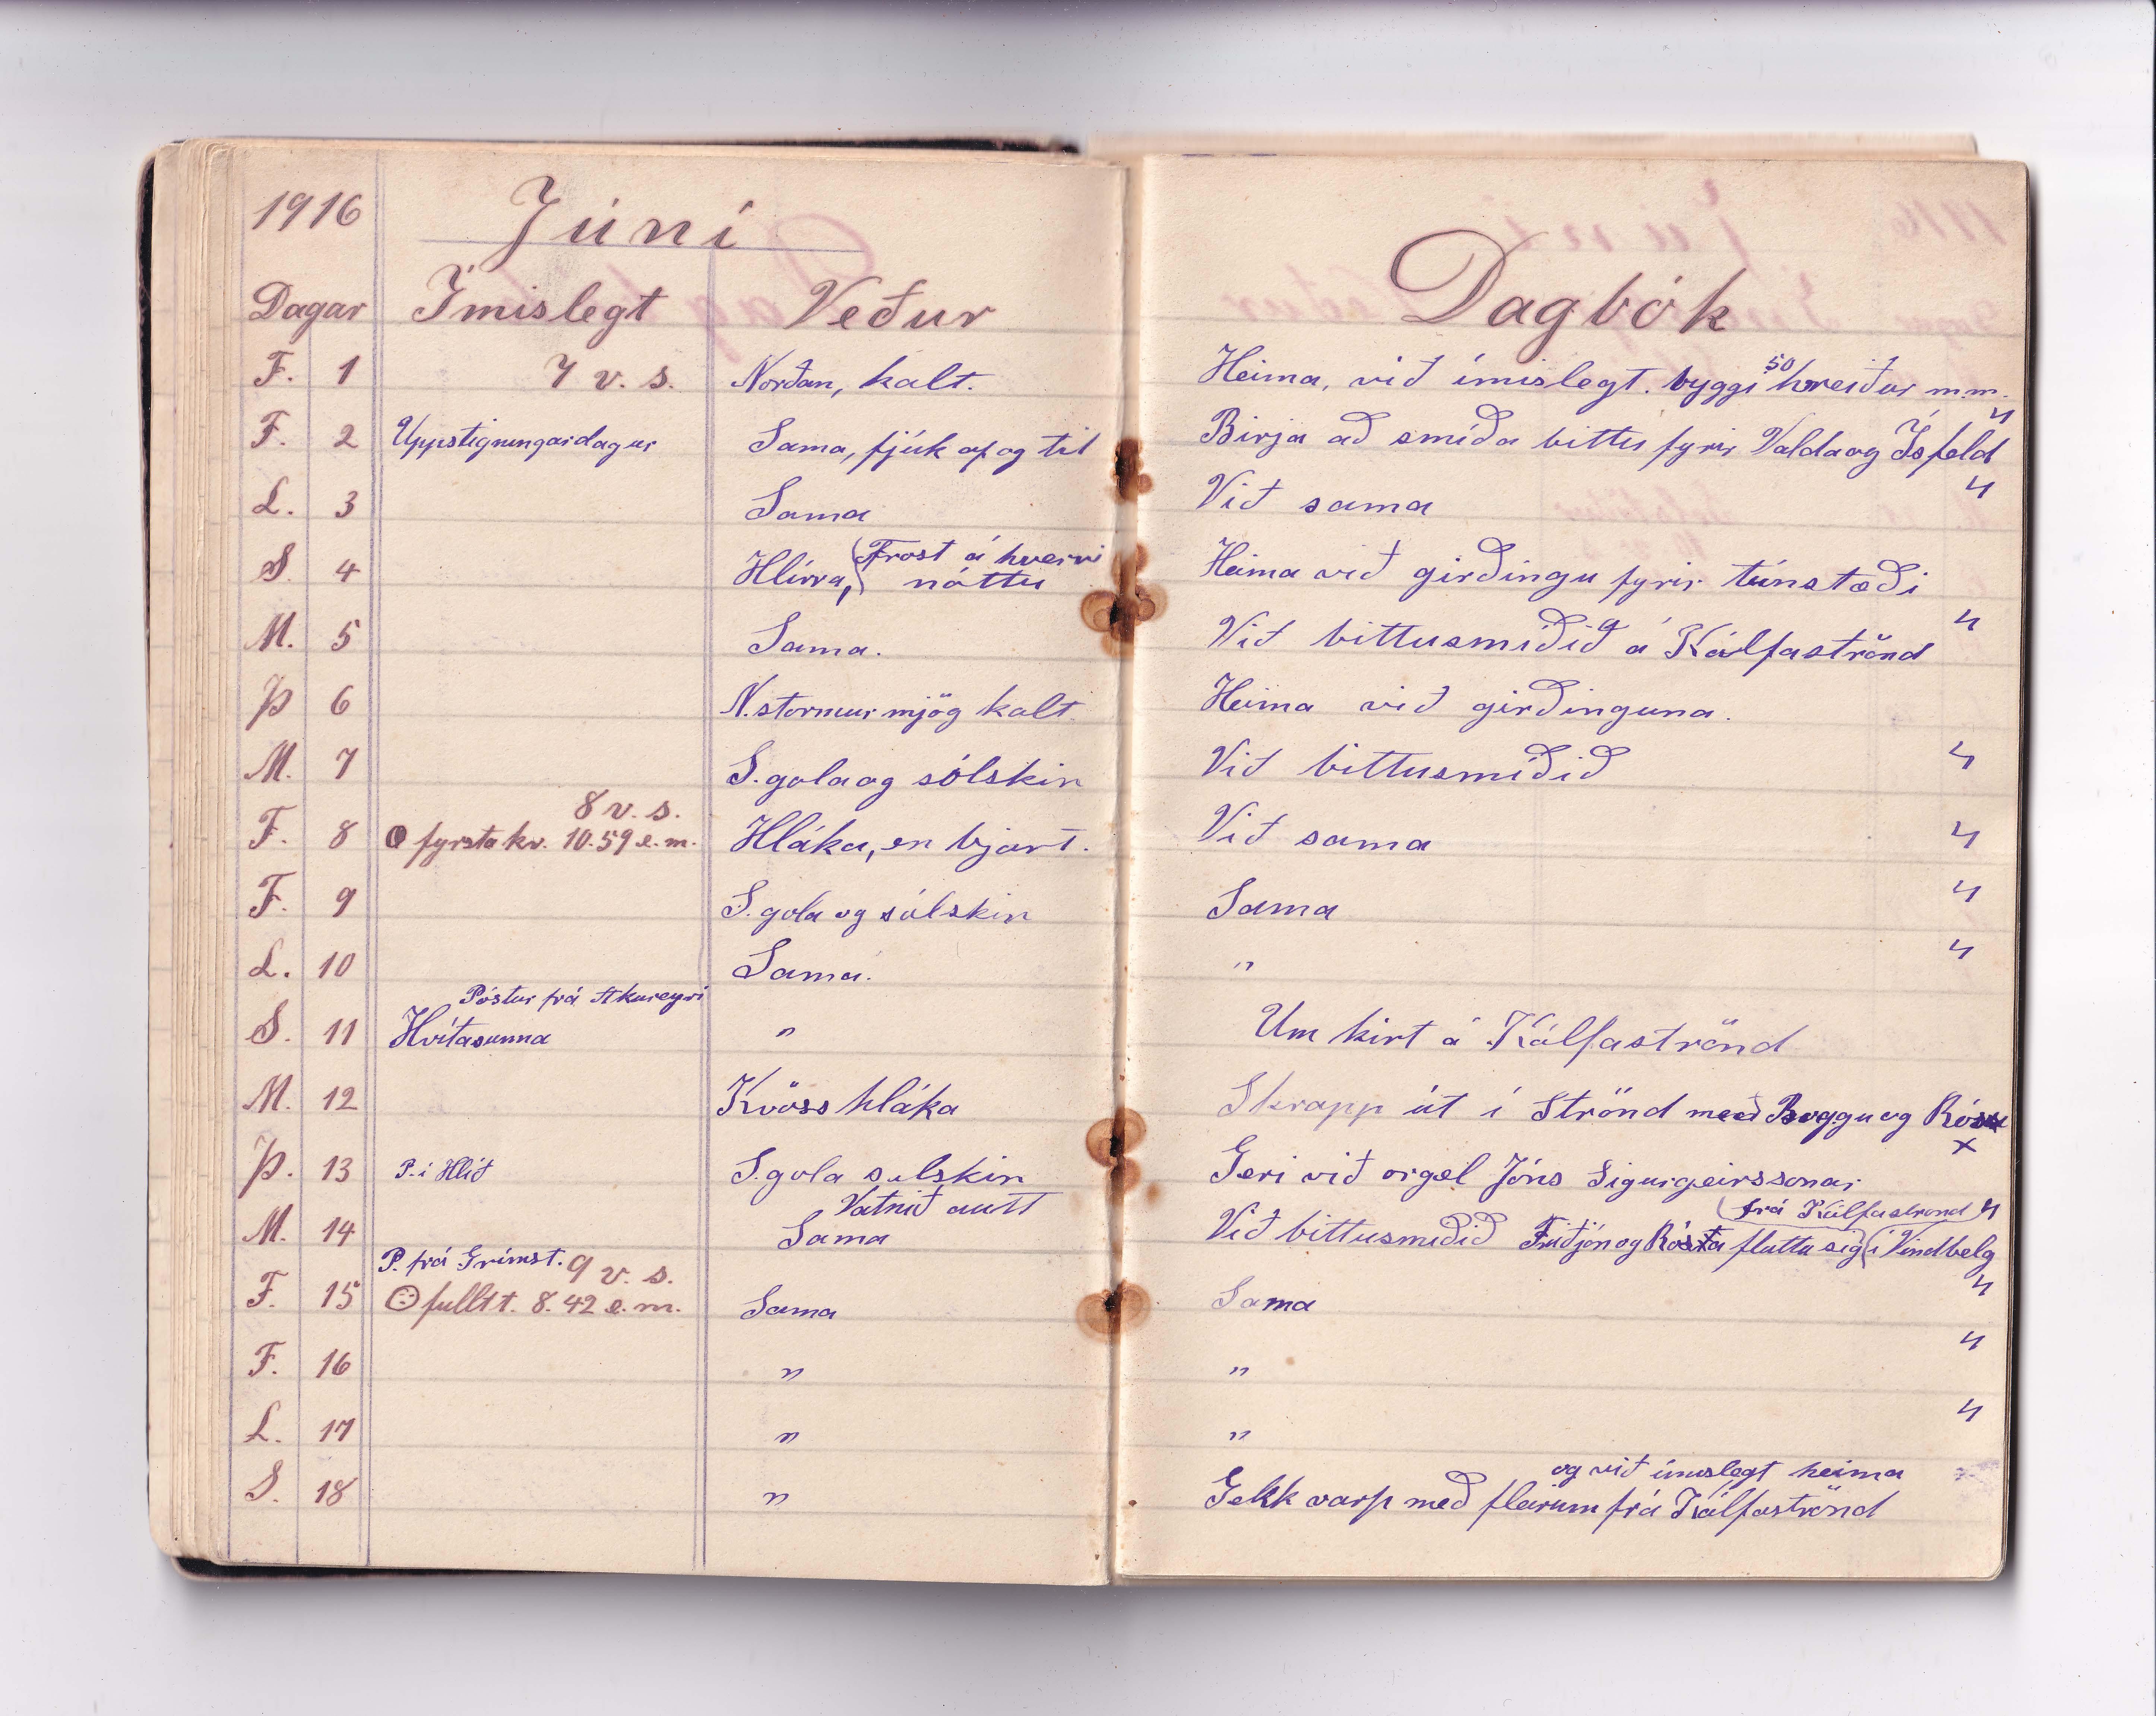 1916 Júní
Dagar Ímislegt Veður
F. 1 7 v. s. Norðan, kalt.
F. 2 Uppstigningardagur Sama, fjúk af og til
L. 3 Sama
S. 4 Hlírra, (Frost á hverri
nóttu
M. 5 Sama.
Þ 6 N. stormur mjög kalt.
M. 7 S. gola og sólskin
8 v. s.
F. 8 fyrsta kv. 10.59 e. m. Hláka, en bjart.
F. 9 S. gola og sólskin
L. 10 Sama.
Póstur frá Akureyri
S. 11 Hvítasunna "
M. 12 Kvöss hláka
Þ. 13 P. í Hlíð S. gola sólskin
Vatnið autt
M. 14 Sama
P. frá Grímst. 9 v. s.
F. 15 fullt t. 8.42 e. m. Sama
F. 16 "
L. 17 "
S. 18 "
Dagbók
50
Heima, við ímislegt. byggi hreiður m.m.
Birja að smíða bittu fyrir Valda og Ísfeld 4
Við sama 4
Heima við girðingu fyrir túnstæði
Við bittusmíðið á Kálfaströnd 4
Heima við girðinguna.
Við bittusmíðið 4
Við sama 4
Sama 4
" 4
Um kirt á Kálfaströnd
Skrapp út í Strönd með Boggu og Rósu
x
Geri við orgel Jóns Sigurgeirssonar
(frá Kálfaströnd 4
Við bittusmíðið Friðjón og Rósa fluttu sig (í Vindbelg
Sama 4
" 4
" 4
og við ímislegt heima
Gekk varp með fleirum frá Kálfaströnd